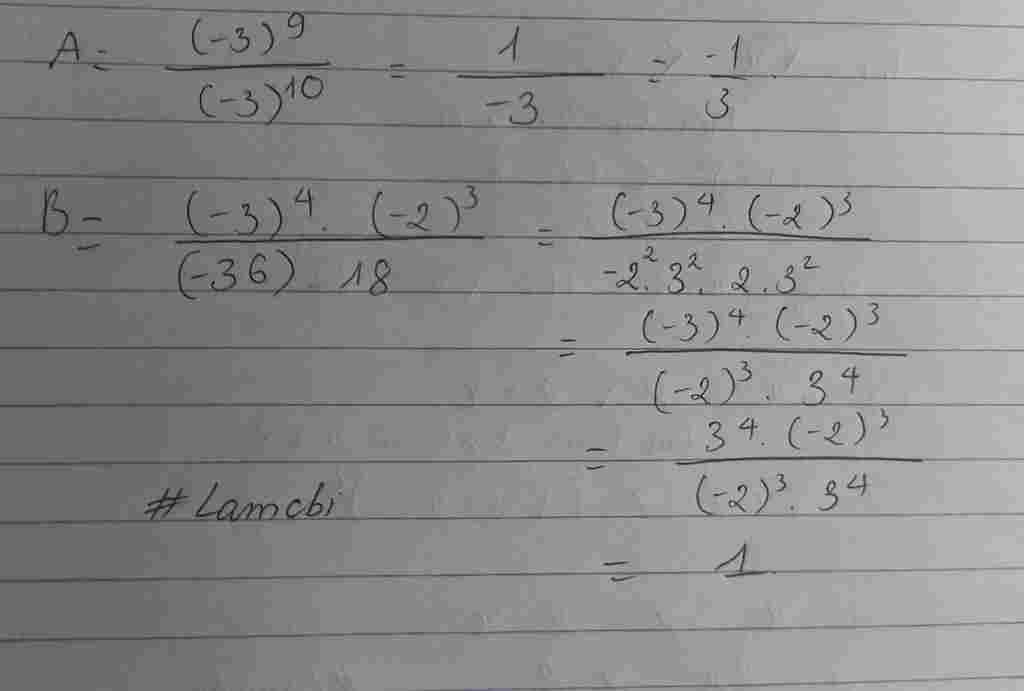 A = (-3)^9 / (-3)^10 = 1 / -3 = -1 / 3
B = (-3)^4 . (-2)^3 / (-36) . 18 = (-3)^4 . (-2)^3 / -2^2 . 3^2 . 2 . 3^2
= (-3)^4 . (-2)^3 / (-2)^3 . 3^4
= 3^4 . (-2)^3 / (-2)^3 . 3^4
# Lamcbi
= 1